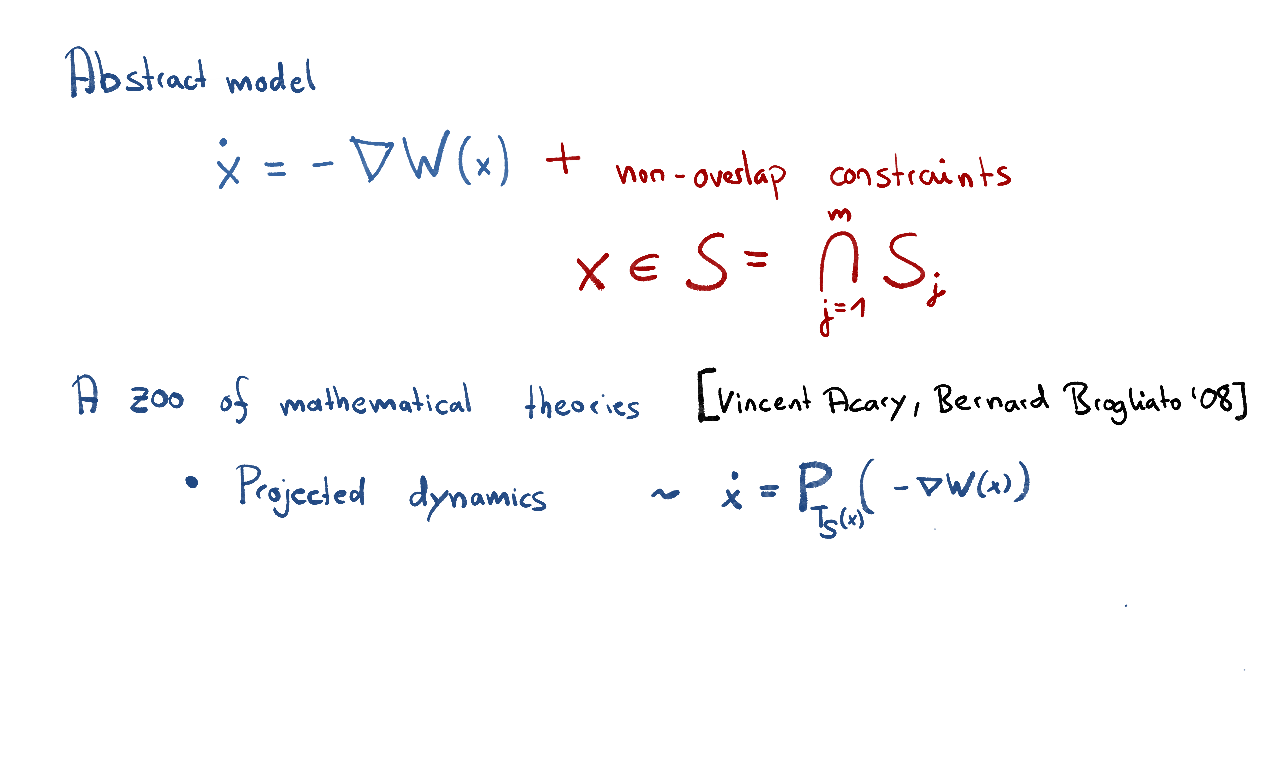 Abstract model
ẋ = - ∇W(x) + non-overlap constraints
x ∈ S = ⋂_{j=1}^{m} S_j
A zoo of mathematical theories [Vincent Acary, Bernard Brogliato '08]
• Projected dynamics ~ ẋ = P_{T_S(x)}(-∇W(x))